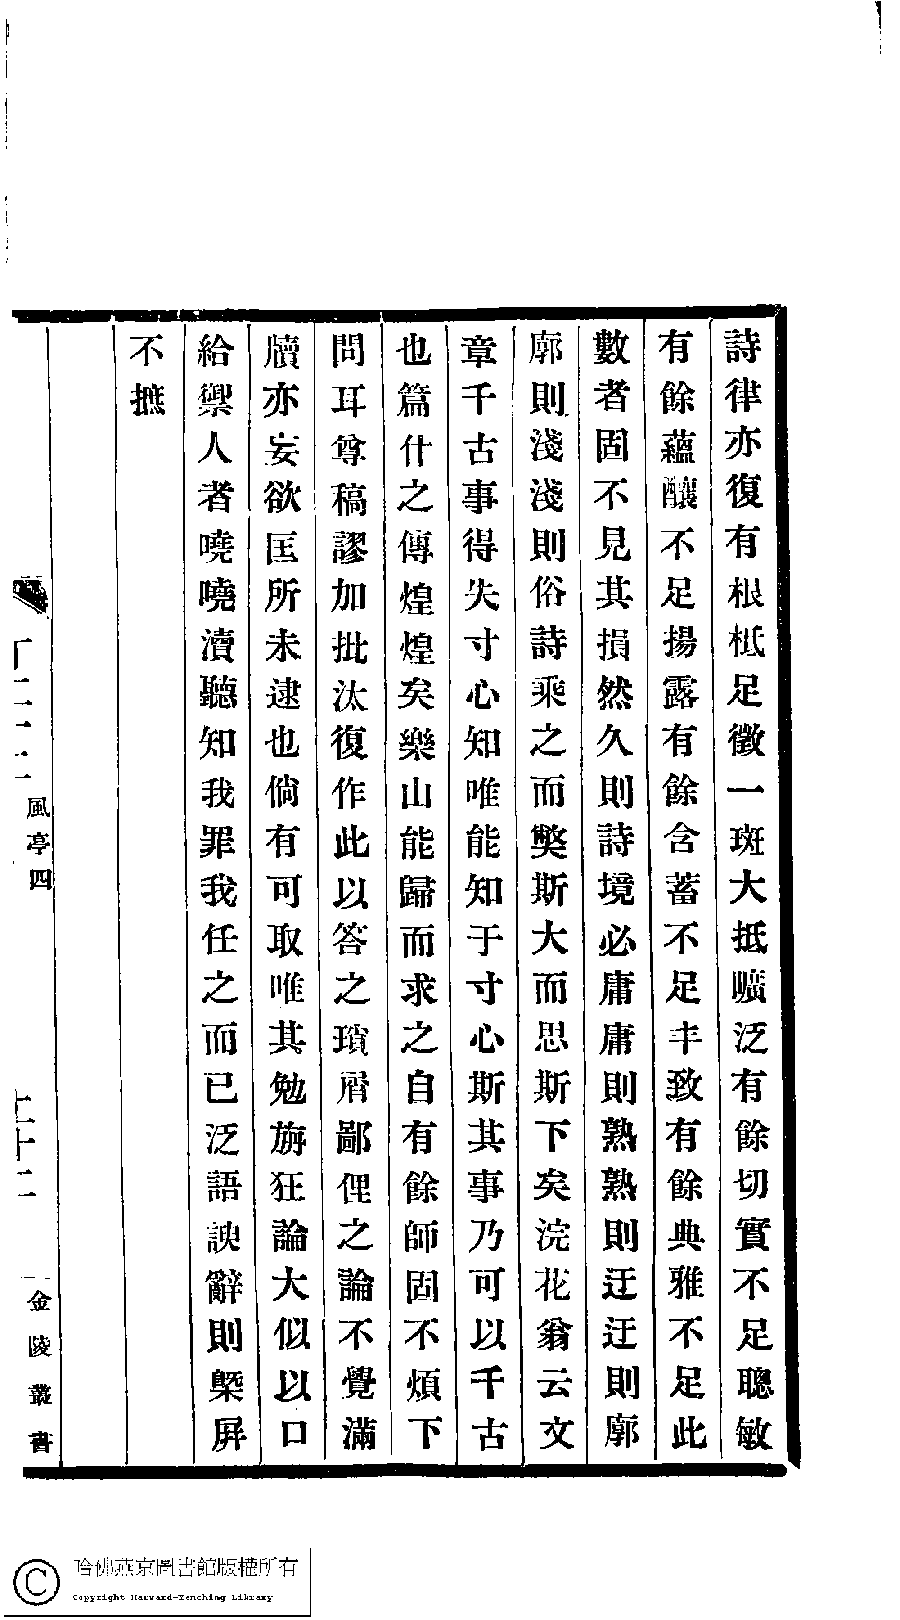 詩律亦復有根柢足徵一斑大抵曠泛有餘切實不足聰敏
有餘蘊釀不足揚露有餘含蓄不足丰致有餘典雅不足此
數者固不見其損然久則詩境必庸庸則熟熟則迂迂則廓
廓則淺淺則俗詩乘之而獘斯大而思斯下矣浣花翁云文
章千古事得失寸心知唯能知于寸心斯其事乃可以千古
也篇什之傳煌煌矣樂山能歸而求之自有餘師固不煩下
問耳尊稿謬加批汰復作此以答之瑣屑鄙俚之論不覺滿
牘亦妄欲匡所未逮也倘有可取唯其勉旃狂論大似以口
給禦人者嘵嘵瀆聽知我罪我任之而已泛語諛辭則槩屏
不摭
風亭四
金陵叢書
哈佛燕京圖書館版權所有
Copyright Harvard-Yenching Library